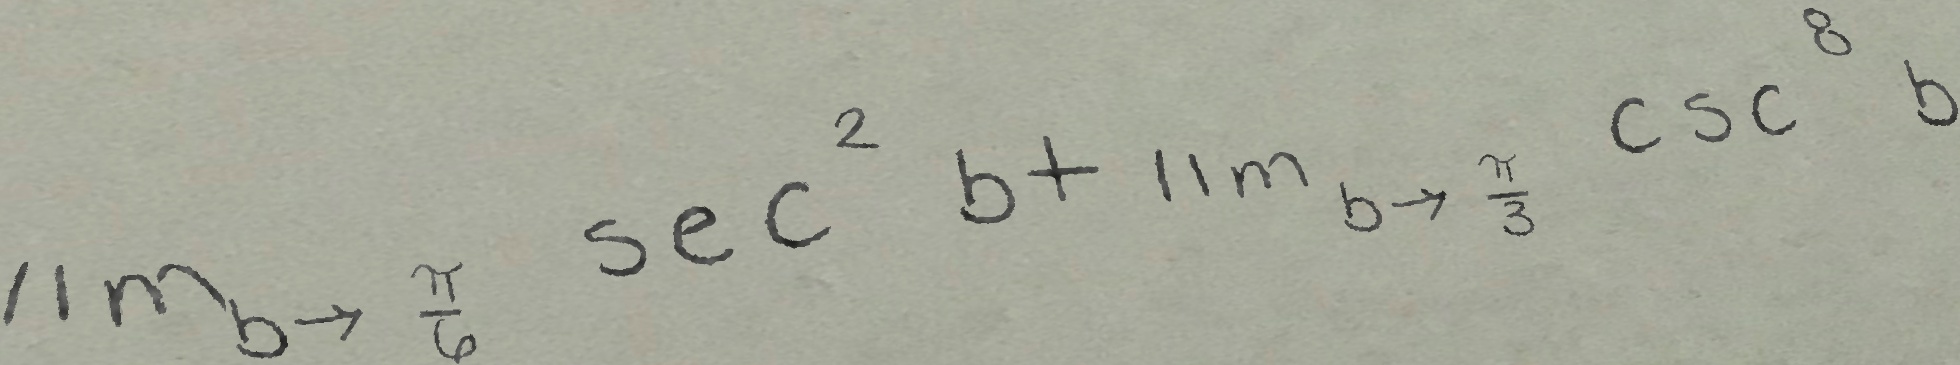 lim_{b→\frac{π}{6}} sec^2 b + lim_{b→\frac{π}{3}} csc^8 b